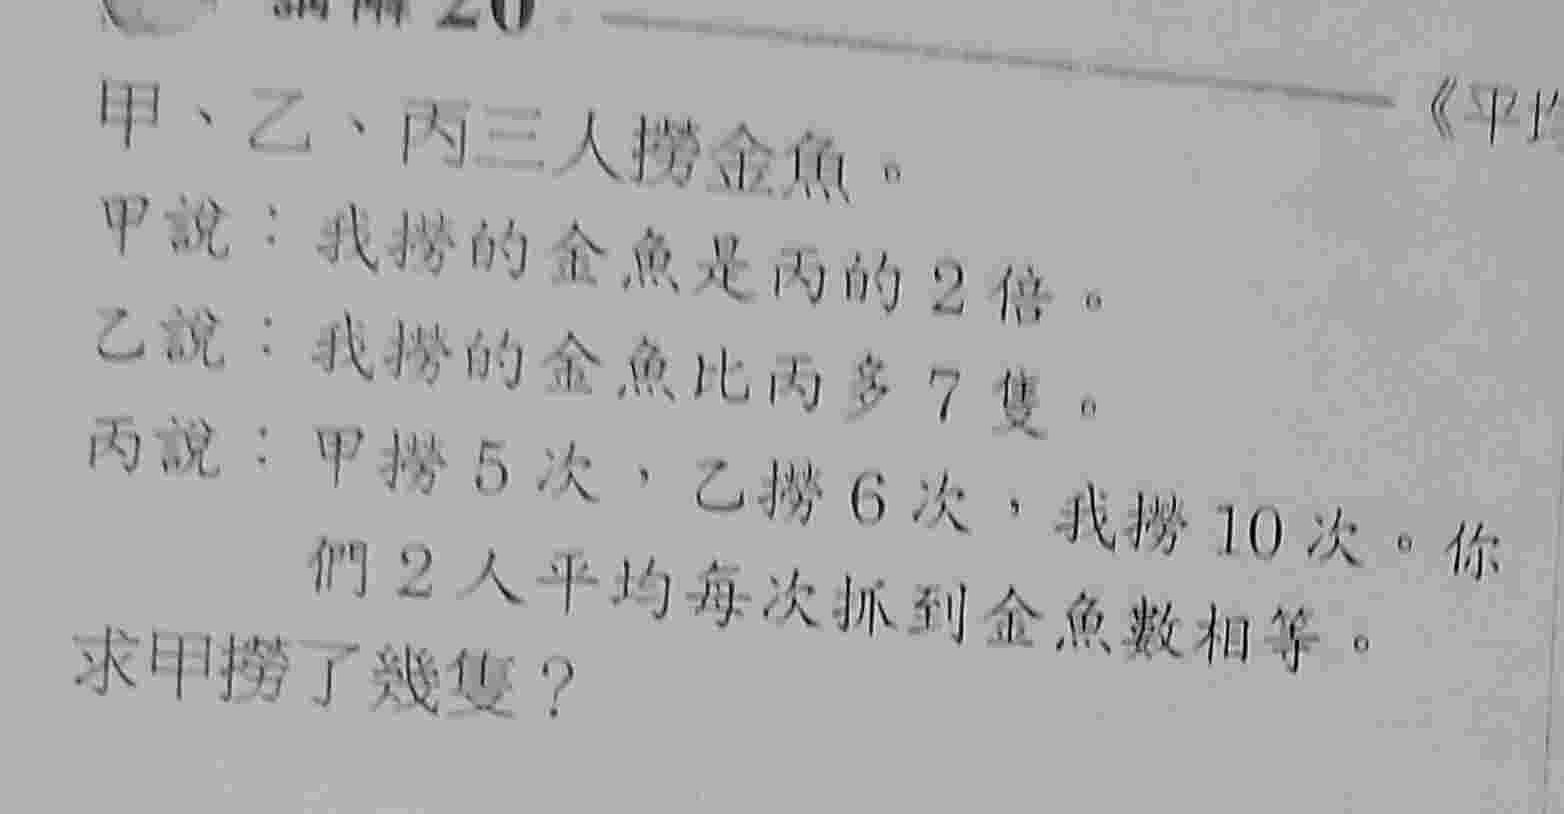 20
《平均
甲、乙、丙三人撈金魚。
甲說：我撈的金魚是丙的2倍。
乙說：我撈的金魚比丙多7隻。
丙說：甲撈5次，乙撈6次，我撈10次。你
們2人平均每次抓到金魚數相等。
求甲撈了幾隻？